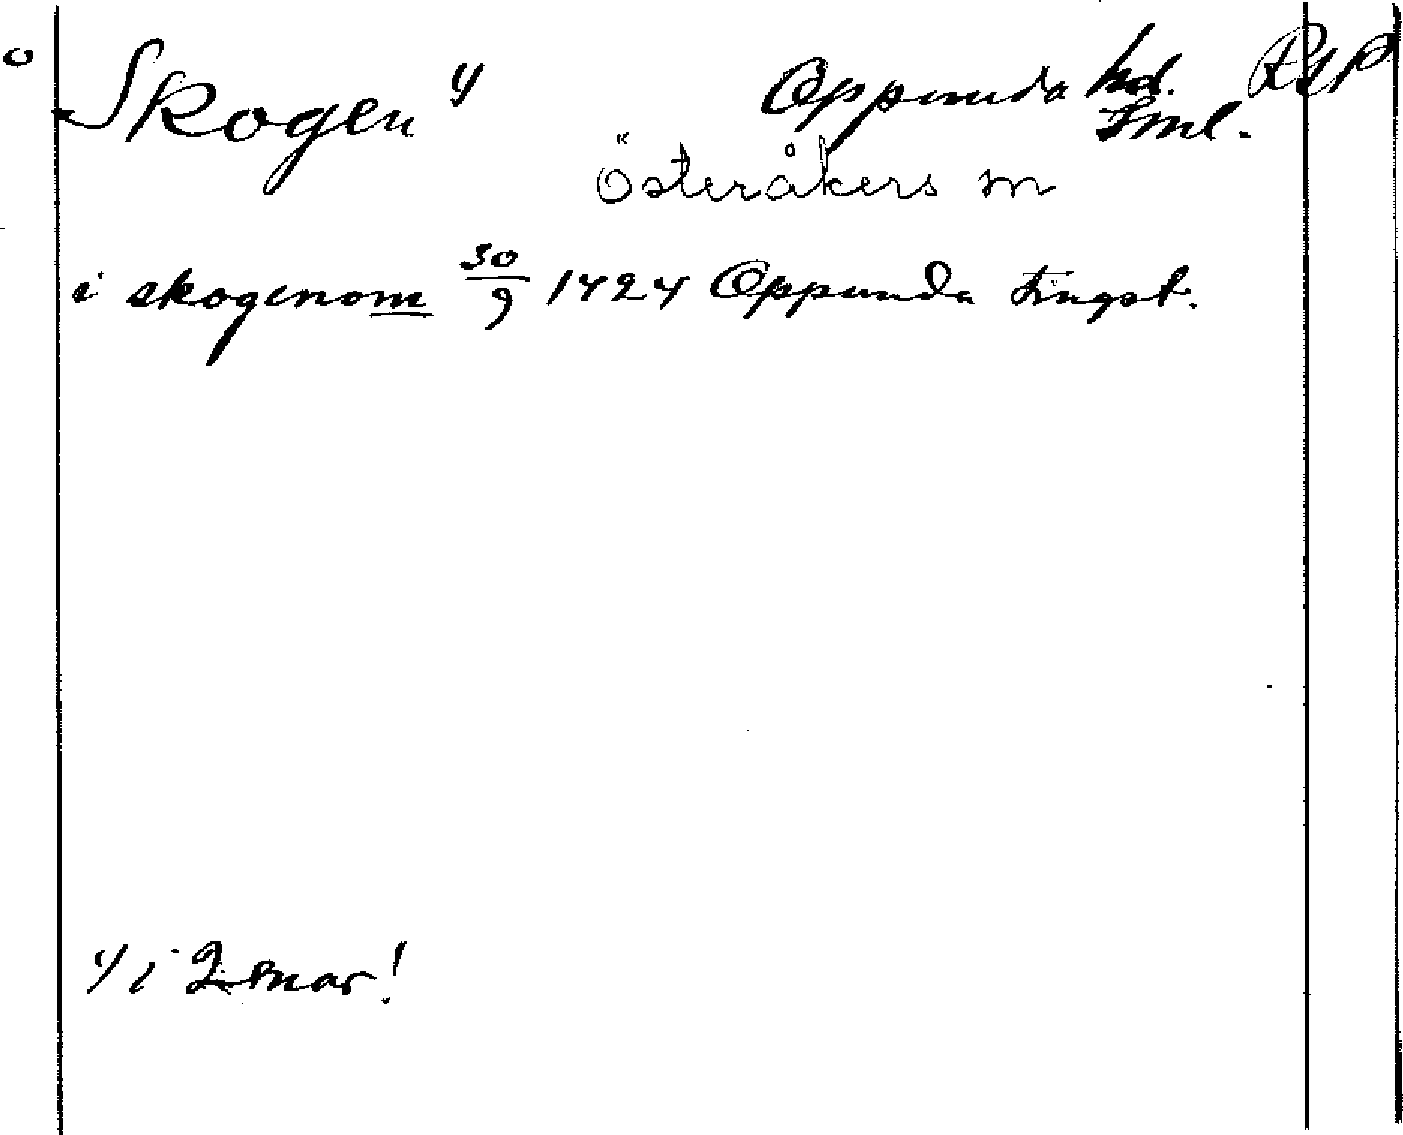 Skogen 1) Oppunda hd. RAP
Sml.
Österåkers sn
i skogenom 30/9 1424 Oppunda tingst.
1) i 2 snar!